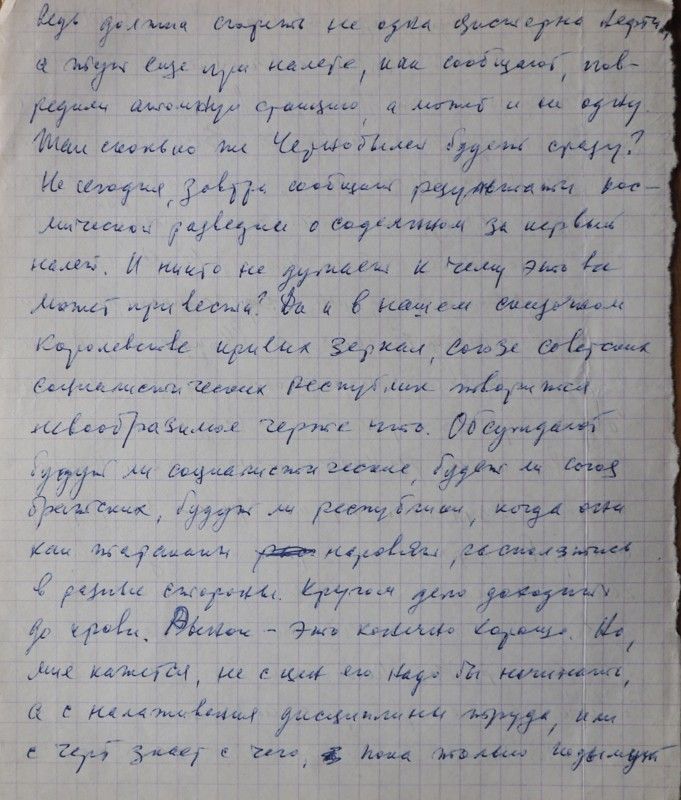 Ведь должна сгореть не одна цистерна нефти,
а тут еще при налете, как сообщают, пов-
редили атомную станцию, а может и не одну.
Так сколько же Чернобылей будет сразу?
Не сегодня, завтра сообщат результаты кос-
мической разведки о содеянном за первый
налет. И никто не думает к чему это все
может привести? Да и в нашем сказочном
Королевстве кривых зеркал, Союзе советских
социалистических республик творится
невообразимое черте что. Обсуждают
будут ли социалистические, будет ли союз
братских, будут ли республики, когда они
как тараканы норовят расползтись
в разные стороны. Кругом дело доходит
до крови. Рынок - это конечно хорошо. Но,
мне кажется, не с цен его надо бы начинать,
а с налаживания дисциплины труда, или
с черт знает с чего, пока только подымут